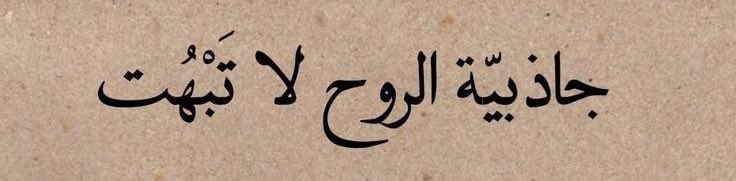 جاذبيّة الروح لا تَبْهُت